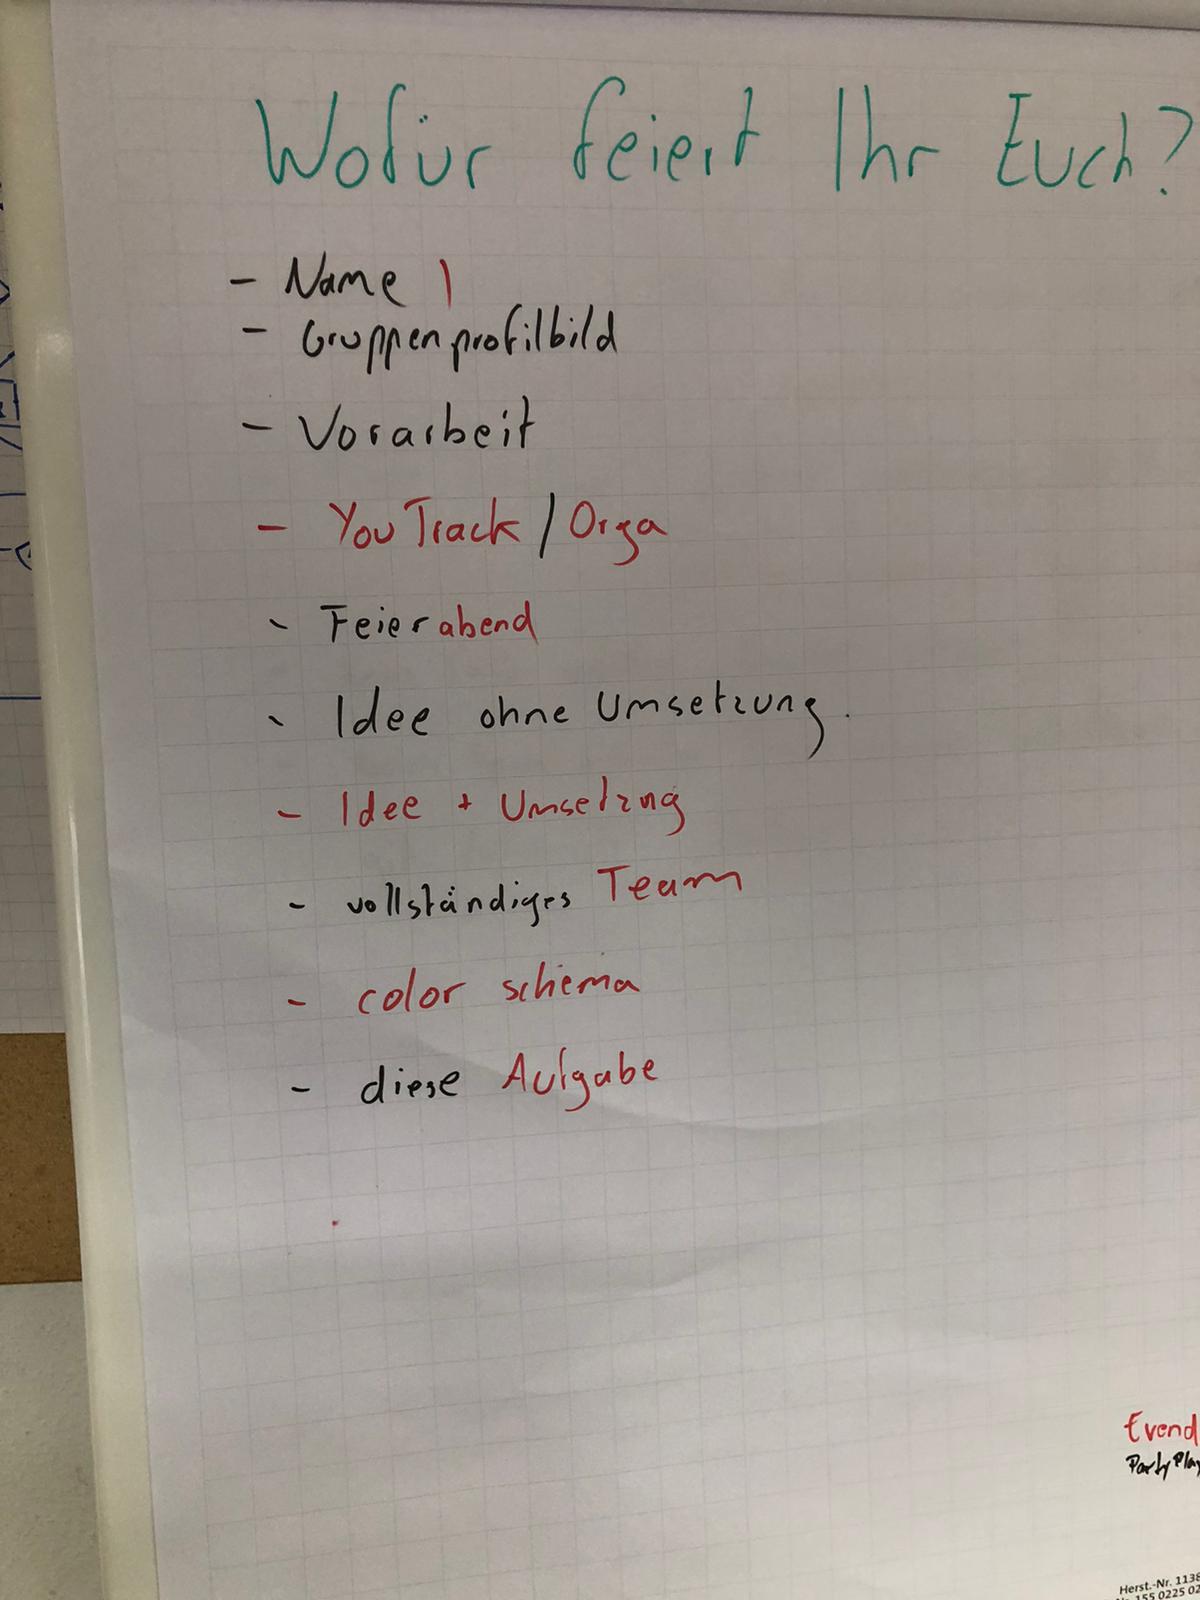 Wofür feiert Ihr Euch?
- Name 1
- Gruppenprofilbild
- Vorarbeit
- YouTrack / Orga
- Feierabend
- Idee ohne Umsetzung.
- Idee + Umsetzng
- vollständiges Team
- color schema
- diese Aufgabe
Evend
Party Play
Herst.-Nr. 1138
155 0225 02